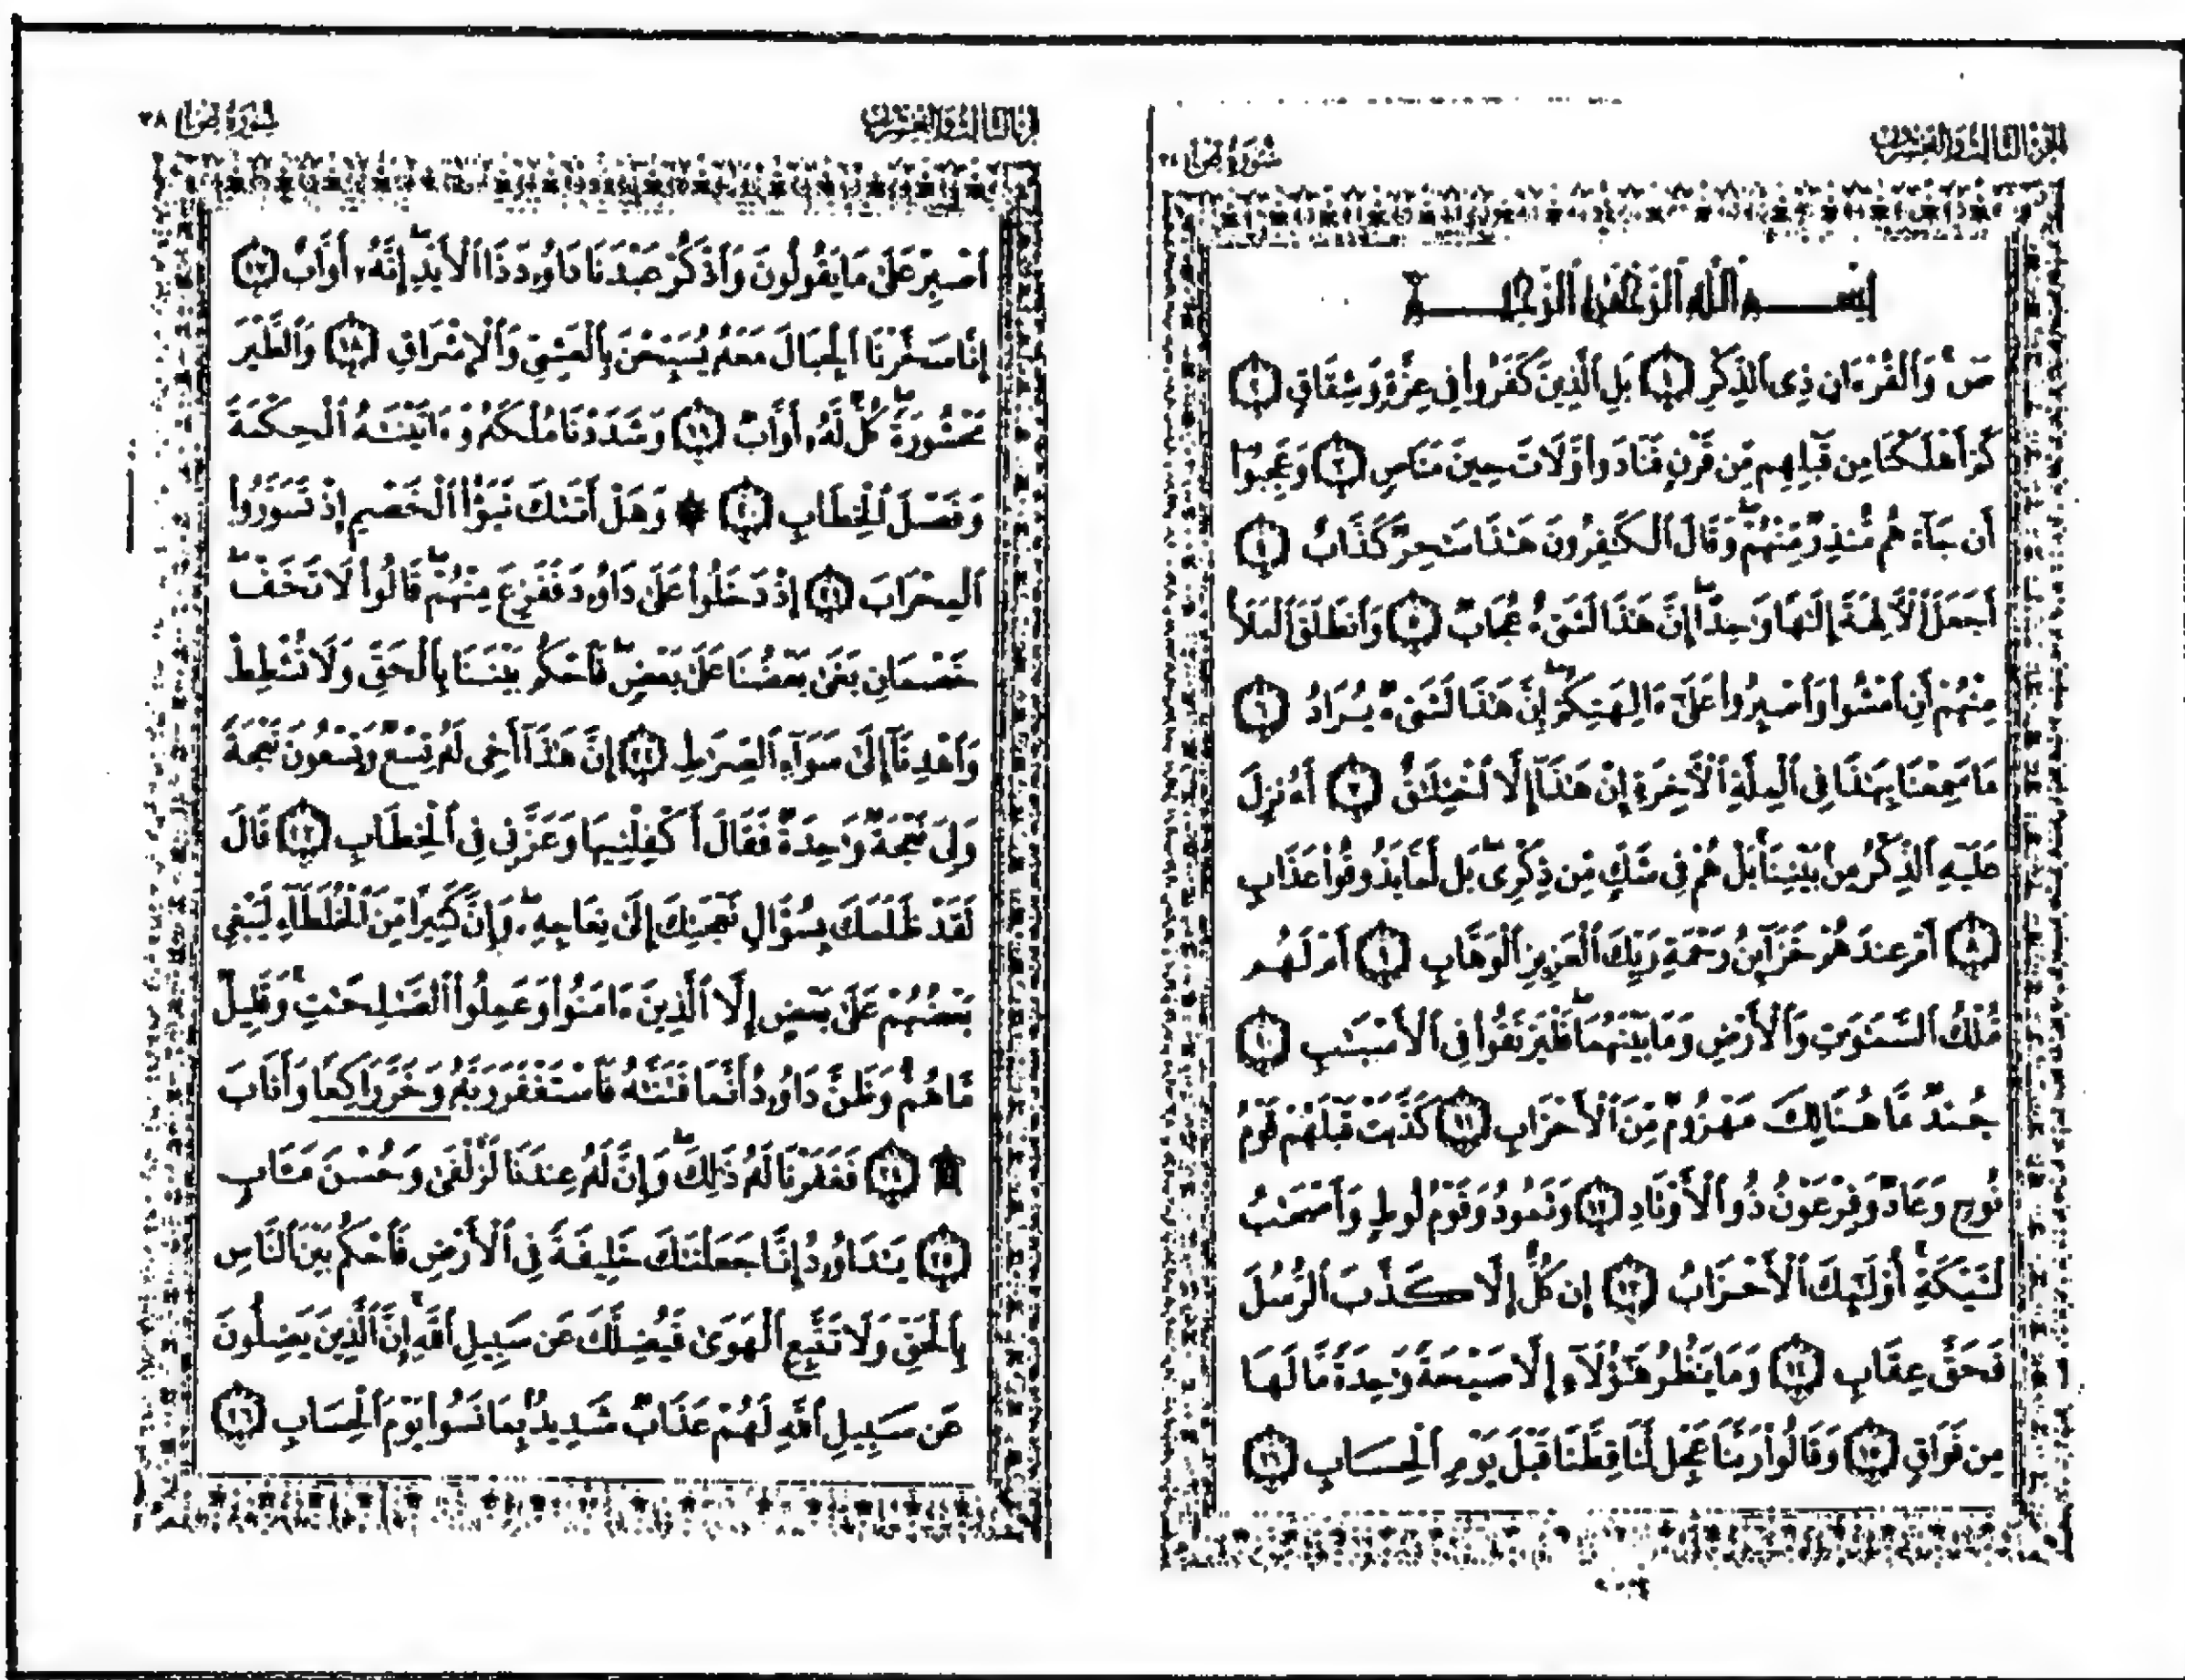 الجزء الثالث والعشرون
سورة ص
بسم الله الرحمن الرحيم
صٓ وَٱلْقُرْءَانِ ذِى ٱلذِّكْرِ ١ بَلِ ٱلَّذِينَ كَفَرُوا۟ فِى عِزَّةٍ وَشِقَاقٍ ٢
كَمْ أَهْلَكْنَا مِن قَبْلِهِم مِّن قَرْنٍ فَنَادَوا۟ وَّلَاتَ حِينَ مَنَاصٍ ٣ وَعَجِبُوٓا۟
أَن جَآءَهُم مُّنذِرٌ مِّنْهُمْ ۖ وَقَالَ ٱلْكَٰفِرُونَ هَٰذَا سَٰحِرٌ كَذَّابٌ ٤
أَجَعَلَ ٱلْءَالِهَةَ إِلَٰهًا وَٰحِدًا ۖ إِنَّ هَٰذَا لَشَىْءٌ عُجَابٌ ٥ وَٱنطَلَقَ ٱلْمَلَأُ
مِنْهُمْ أَنِ ٱمْشُوا۟ وَٱصْبِرُوا۟ عَلَىٰٓ ءَالِهَتِكُمْ ۖ إِنَّ هَٰذَا لَشَىْءٌ يُرَادُ ٦
مَا سَمِعْنَا بِهَٰذَا فِى ٱلْمِلَّةِ ٱلْءَاخِرَةِ إِنْ هَٰذَآ إِلَّا ٱخْتِلَٰقٌ ٧ أَءُنزِلَ
عَلَيْهِ ٱلذِّكْرُ مِنۢ بَيْنِنَا ۚ بَلْ هُمْ فِى شَكٍّ مِّن ذِكْرِى ۖ بَل لَّمَّا يَذُوقُوا۟ عَذَابِ
٨ أَمْ عِندَهُمْ خَزَآئِنُ رَحْمَةِ رَبِّكَ ٱلْعَزِيزِ ٱلْوَهَّابِ ٩ أَمْ لَهُم
مُّلْكُ ٱلسَّمَٰوَٰتِ وَٱلْأَرْضِ وَمَا بَيْنَهُمَا ۖ فَلْيَرْتَقُوا۟ فِى ٱلْأَسْبَٰبِ ١٠
جُندٌ مَّا هُنَالِكَ مَهْزُومٌ مِّنَ ٱلْأَحْزَابِ ١١ كَذَّبَتْ قَبْلَهُمْ قَوْمُ
نُوحٍ وَعَادٌ وَفِرْعَوْنُ ذُو ٱلْأَوْتَادِ ١٢ وَثَمُودُ وَقَوْمُ لُوطٍ وَأَصْحَٰبُ
لْـَٔيْكَةِ ۚ أُو۟لَٰٓئِكَ ٱلْأَحْزَابُ ١٣ إِن كُلٌّ إِلَّا كَذَّبَ ٱلرُّسُلَ
فَحَقَّ عِقَابِ ١٤ وَمَا يَنظُرُ هَٰٓؤُلَآءِ إِلَّا صَيْحَةً وَٰحِدَةً مَّا لَهَا
مِن فَوَاقٍ ١٥ وَقَالُوا۟ رَبَّنَا عَجِّل لَّنَا قِطَّنَا قَبْلَ يَوْمِ ٱلْحِسَابِ ١٦
الجزء الثالث والعشرون
سورة ص ٣٨
ٱصْبِرْ عَلَىٰ مَا يَقُولُونَ وَٱذْكُرْ عَبْدَنَا دَاوُۥدَ ذَا ٱلْأَيْدِ ۖ إِنَّهُۥٓ أَوَّابٌ ١٧
إِنَّا سَخَّرْنَا ٱلْجِبَالَ مَعَهُۥ يُسَبِّحْنَ بِٱلْعَشِىِّ وَٱلْإِشْرَاقِ ١٨ وَٱلطَّيْرَ
مَحْشُورَةً ۖ كُلٌّ لَّهُۥٓ أَوَّابٌ ١٩ وَشَدَدْنَا مُلْكَهُۥ وَءَاتَيْنَٰهُ ٱلْحِكْمَةَ
وَفَصْلَ ٱلْخِطَابِ ٢٠ ۞ وَهَلْ أَتَىٰكَ نَبَؤُا۟ ٱلْخَصْمِ إِذْ تَسَوَّرُوا۟
ٱلْمِحْرَابَ ٢١ إِذْ دَخَلُوا۟ عَلَىٰ دَاوُۥدَ فَفَزِعَ مِنْهُمْ ۖ قَالُوا۟ لَا تَخَفْ ۖ
خَصْمَانِ بَغَىٰ بَعْضُنَا عَلَىٰ بَعْضٍ ۖ فَٱحْكُم بَيْنَنَا بِٱلْحَقِّ وَلَا تُشْطِطْ
وَٱهْدِنَآ إِلَىٰ سَوَآءِ ٱلصِّرَٰطِ ٢٢ إِنَّ هَٰذَآ أَخِى لَهُۥ تِسْعٌ وَتِسْعُونَ نَعْجَةً
وَلِىَ نَعْجَةٌ وَٰحِدَةٌ فَقَالَ أَكْفِلْنِيهَا وَعَزَّنِى فِى ٱلْخِطَابِ ٢٣ قَالَ
لَقَدْ ظَلَمَكَ بِسُؤَالِ نَعْجَتِكَ إِلَىٰ نِعَاجِهِۦ ۖ وَإِنَّ كَثِيرًا مِّنَ ٱلْخُلَطَآءِ لَيَبْغِى
بَعْضُهُمْ عَلَىٰ بَعْضٍ إِلَّا ٱلَّذِينَ ءَامَنُوا۟ وَعَمِلُوا۟ ٱلصَّٰلِحَٰتِ وَقَلِيلٌ
مَّا هُمْ ۗ وَظَنَّ دَاوُۥدُ أَنَّمَا فَتَنَّٰهُ فَٱسْتَغْفَرَ رَبَّهُۥ وَخَرَّ رَاكِعًا وَأَنَابَ
۩ ٢٤ فَغَفَرْنَا لَهُۥ ذَٰلِكَ ۖ وَإِنَّ لَهُۥ عِندَنَا لَزُلْفَىٰ وَحُسْنَ مَـَٔابٍ
٢٥ يَٰدَاوُۥدُ إِنَّا جَعَلْنَٰكَ خَلِيفَةً فِى ٱلْأَرْضِ فَٱحْكُم بَيْنَ ٱلنَّاسِ
بِٱلْحَقِّ وَلَا تَتَّبِعِ ٱلْهَوَىٰ فَيُضِلَّكَ عَن سَبِيلِ ٱللَّهِ ۚ إِنَّ ٱلَّذِينَ يَضِلُّونَ
عَن سَبِيلِ ٱللَّهِ لَهُمْ عَذَابٌ شَدِيدٌۢ بِمَا نَسُوا۟ يَوْمَ ٱلْحِسَابِ ٢٦